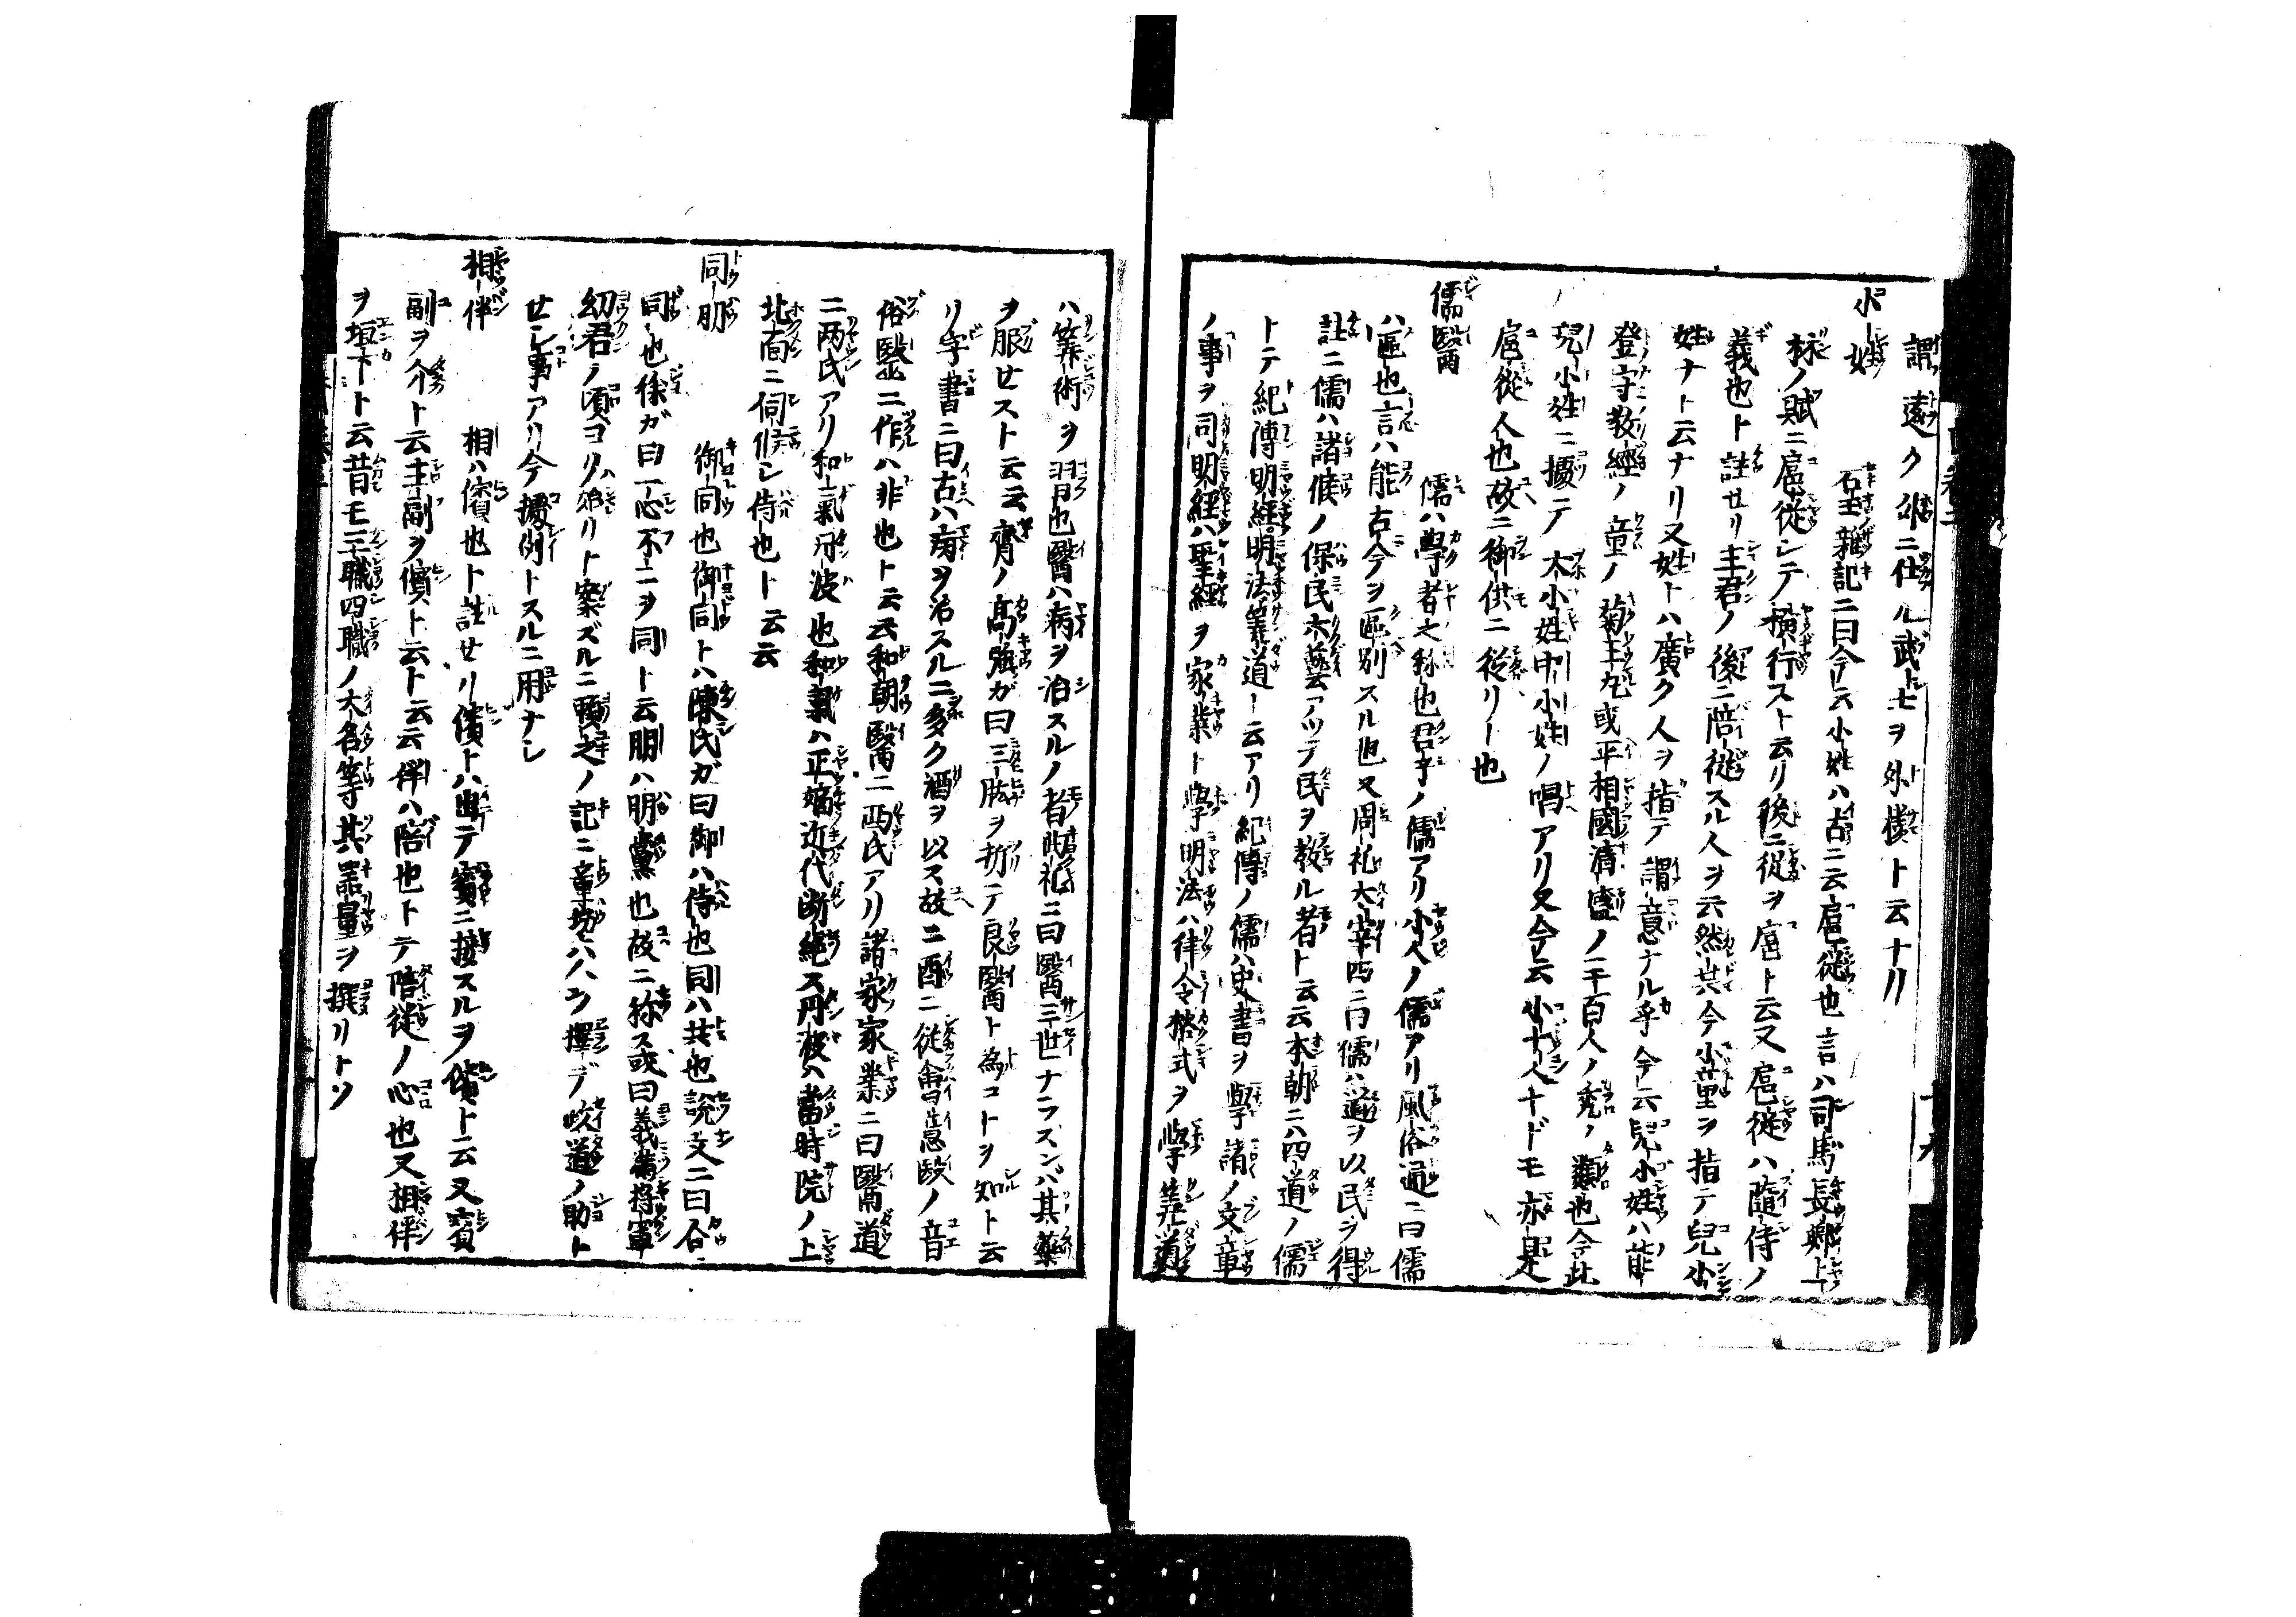 謂遠ク外ニ仕ル武士ヲ外様ト云ナリ
小姓 石王雑記ニ曰今云小姓ハ古ニ云扈從也言ハ司馬長卿上
林ノ賦ニ扈從シテ横行スト云リ後ニ從ヲ扈ト云又扈從ハ隨侍ノ
義也ト註セリ主君ノ後ニ陪從スル人ヲ云然共今小童ヲ指テ兒小
姓ナト云ナリ又姓トハ廣ク人ヲ指テ謂意ナル乎今云兒小姓ハ能
登守教經ノ童ノ菊王丸或平相國清盛ノ三百人ノ禿ノ類也今此
兒小姓ニ據テ大小姓中小姓ノ唱アリ又今云小十人ナドモ亦是
扈從人也故ニ御供ニ從リ也
儒醫 儒ハ學者之称也君子ノ儒アリ小人ノ儒アリ風俗通ニ曰儒
ハ區也言ハ能古今ヲ區別スル也又周礼大宰四ニ曰儒ハ道ヲ以民ヲ得
註ニ儒ハ諸侯ノ保民六藝アツテ民ヲ教ル者ト云云本朝ニハ四道ノ儒
トテ紀傳明經明法筭道ト云アリ紀傳ノ儒ハ史書ヲ學諸ノ文章
ノ事ヲ司明經ハ聖經ヲ家業ト學明法ハ律令格式ヲ學筭道
ハ筭術ヲ習也醫ハ病ヲ治スルノ者曲礼ニ曰醫三世ナラズンバ其藥
ヲ服セスト云云齊ノ高強ガ曰三肱ヲ折テ良醫ト為コトヲ知ト云
リ字書ニ曰古ハ病ヲ治スルニ多ク酒ヲ以ス故ニ酉ニ從會意殹ノ音
俗毉ニ作ハ非也ト云云和朝醫ニ両氏アリ諸家家業ニ曰醫道
ニ両氏アリ和氣丹波也和氣ハ正嫡近代断絶ス丹波ハ當時院ノ上
北面ニ伺候シ侍也ト云云
同朋 御同也御同トハ陳氏ガ曰御ハ侍也同ハ共也説文ニ曰合
同也徐ガ曰一心不二ヲ同ト云朋ハ朋黨也故ニ称ス或曰義満将軍
幼君ノ頃ヨリハ始リト案ズルニ頼之ノ記ニ童坊六人ウ擇デ政道ノ助ト
セシ事アリ今據例トスルニ用ナシ
相伴 相ハ儐也ト註セリ儐トハ出テ賓ニ接スルヲ儐ト云又賓
副ヲ介ト云主副ヲ儐ト云ト云云伴ハ陪也トテ陪從ノ心也又相伴
ヲ垣下ト云昔モ三職四職ノ大名等其器量ヲ撰リトソ